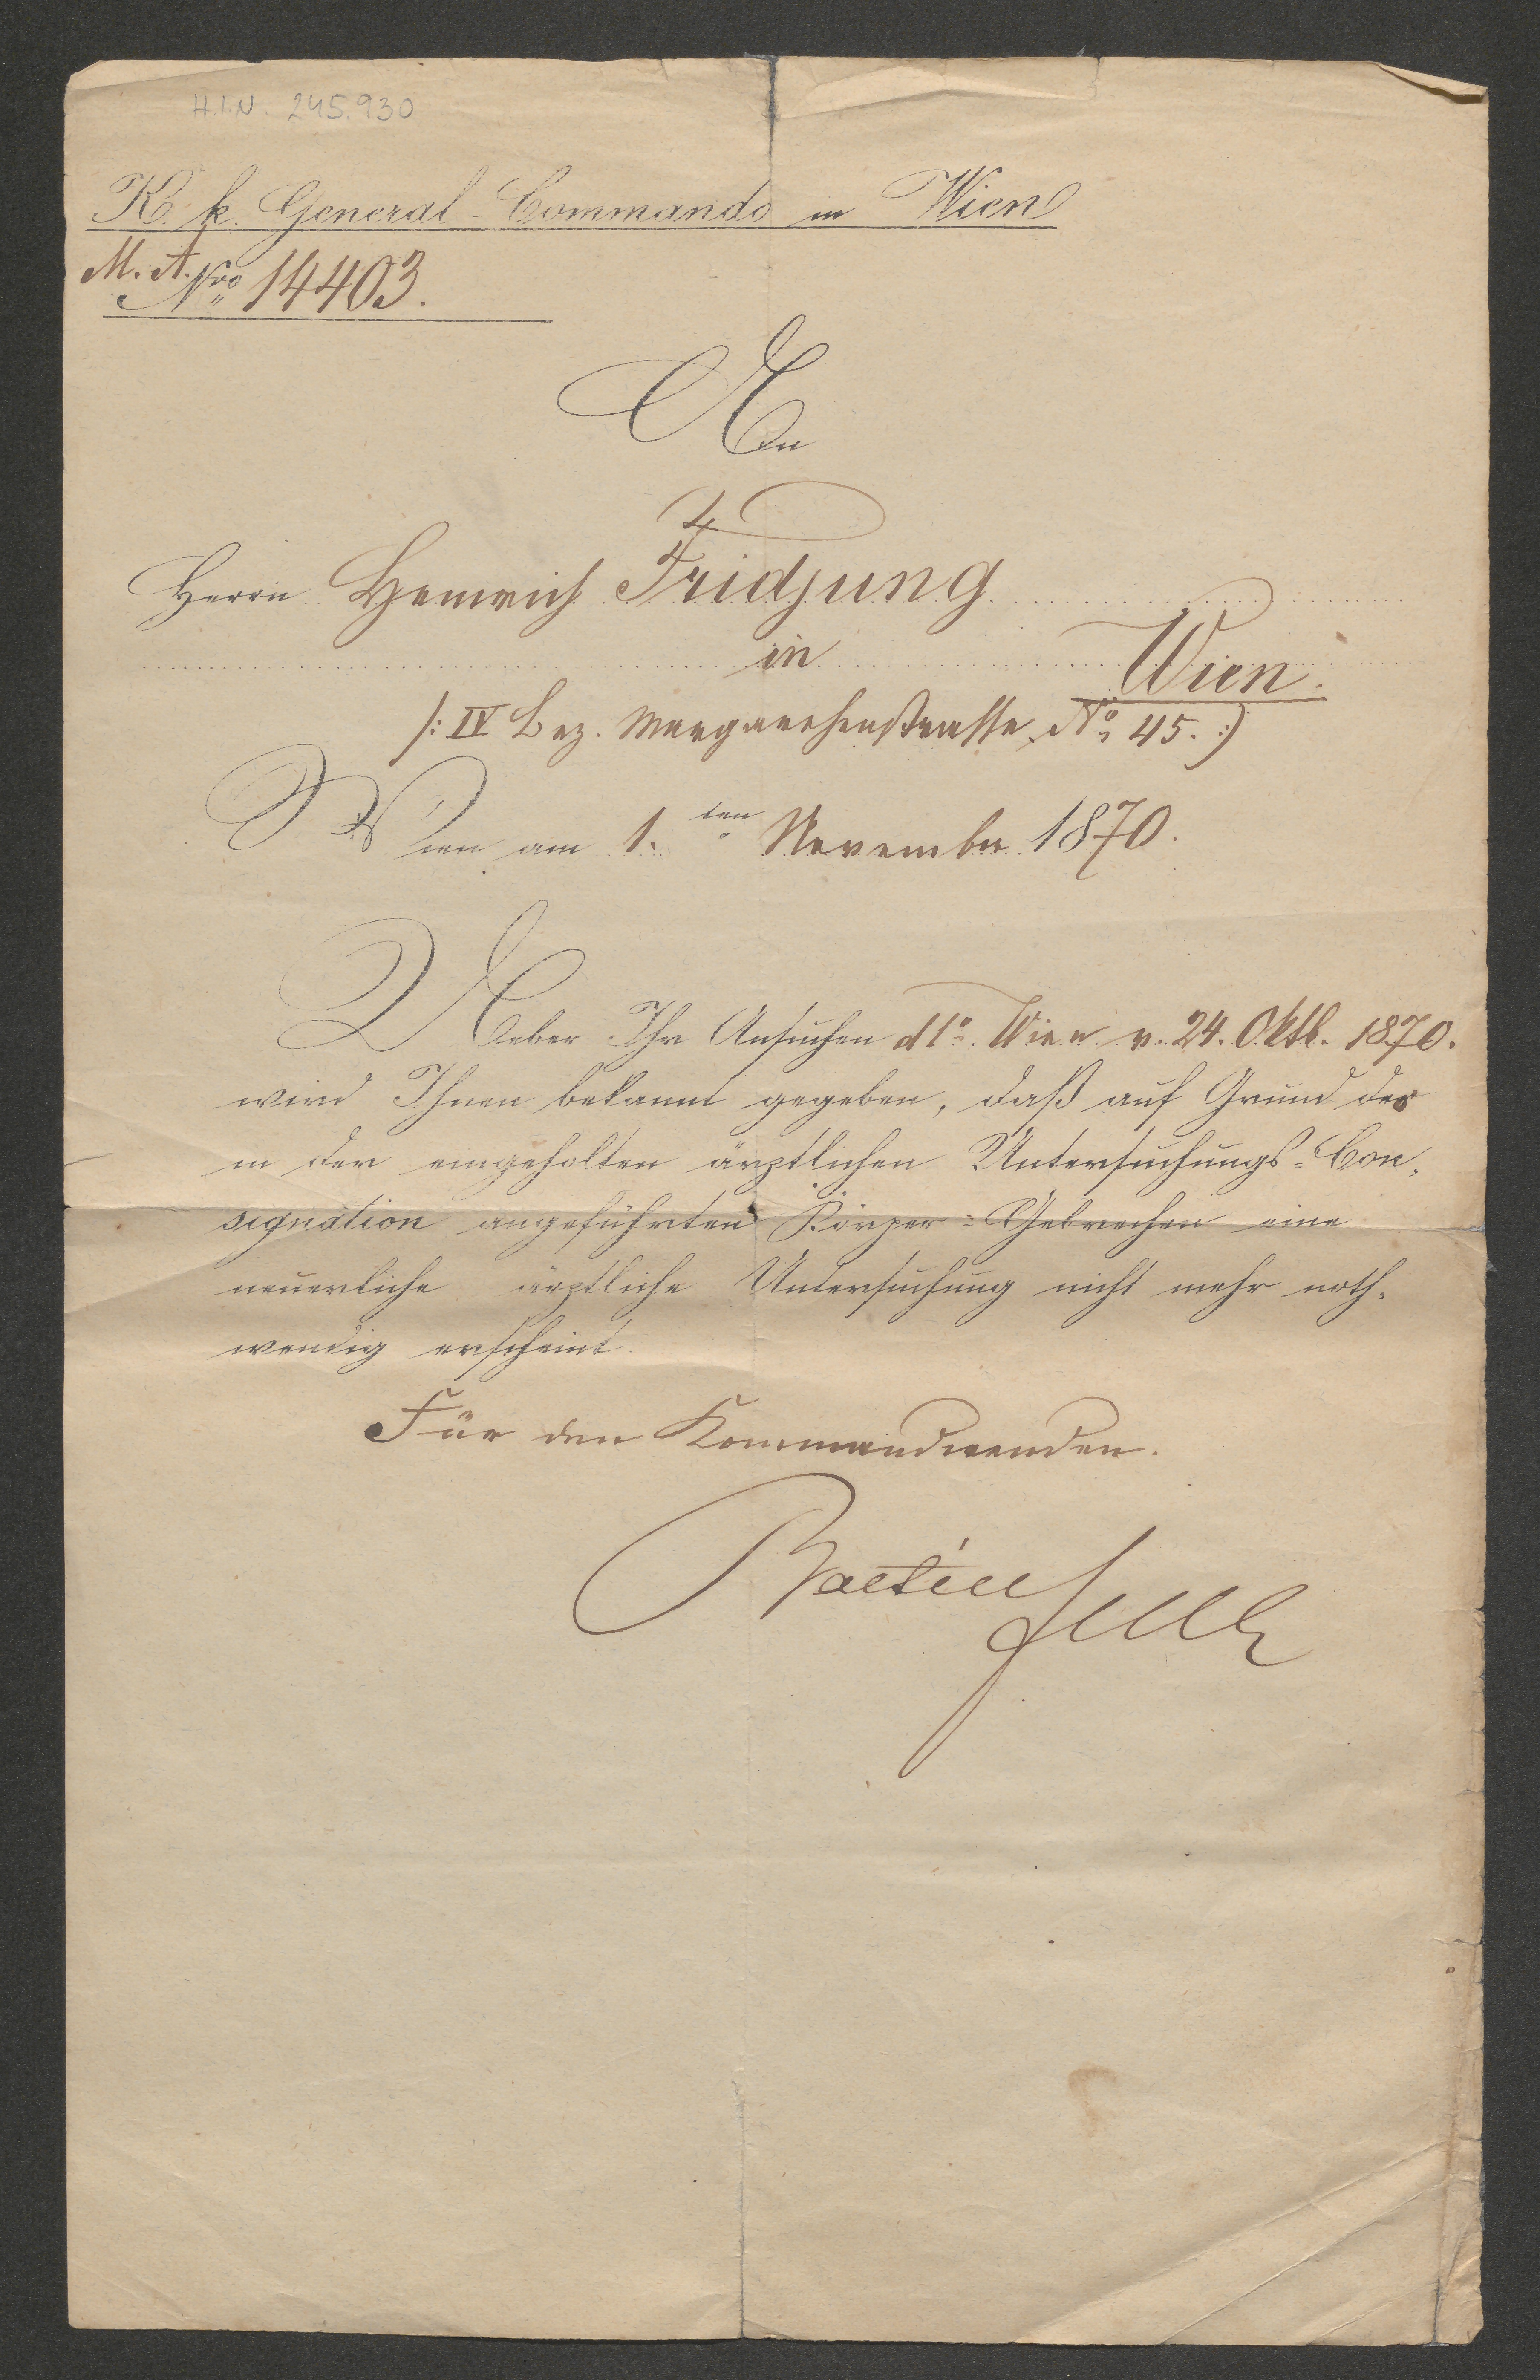 H.I.N. 245.930
K. k. General-Commando in Wien
M. A. Nro 14403.
An
Herrn Heinrich Fridjung
in Wien.
/: IV Bez. Margarethenstrasse No 45. :/
Wien am 1. ten November 1870.
Ueber Ihr Ansuchen dto. Wien v. 24. Oktb. 1870.
wird Ihnen bekannt gegeben, daß auf Grund der
in der eingeholten ärztlichen Untersuchungs-Con-
signation angeführten Körper-Gebrechen eine
neuerliche ärztliche Untersuchung nicht mehr noth-
wendig erscheint.
Für den Kommandirenden.